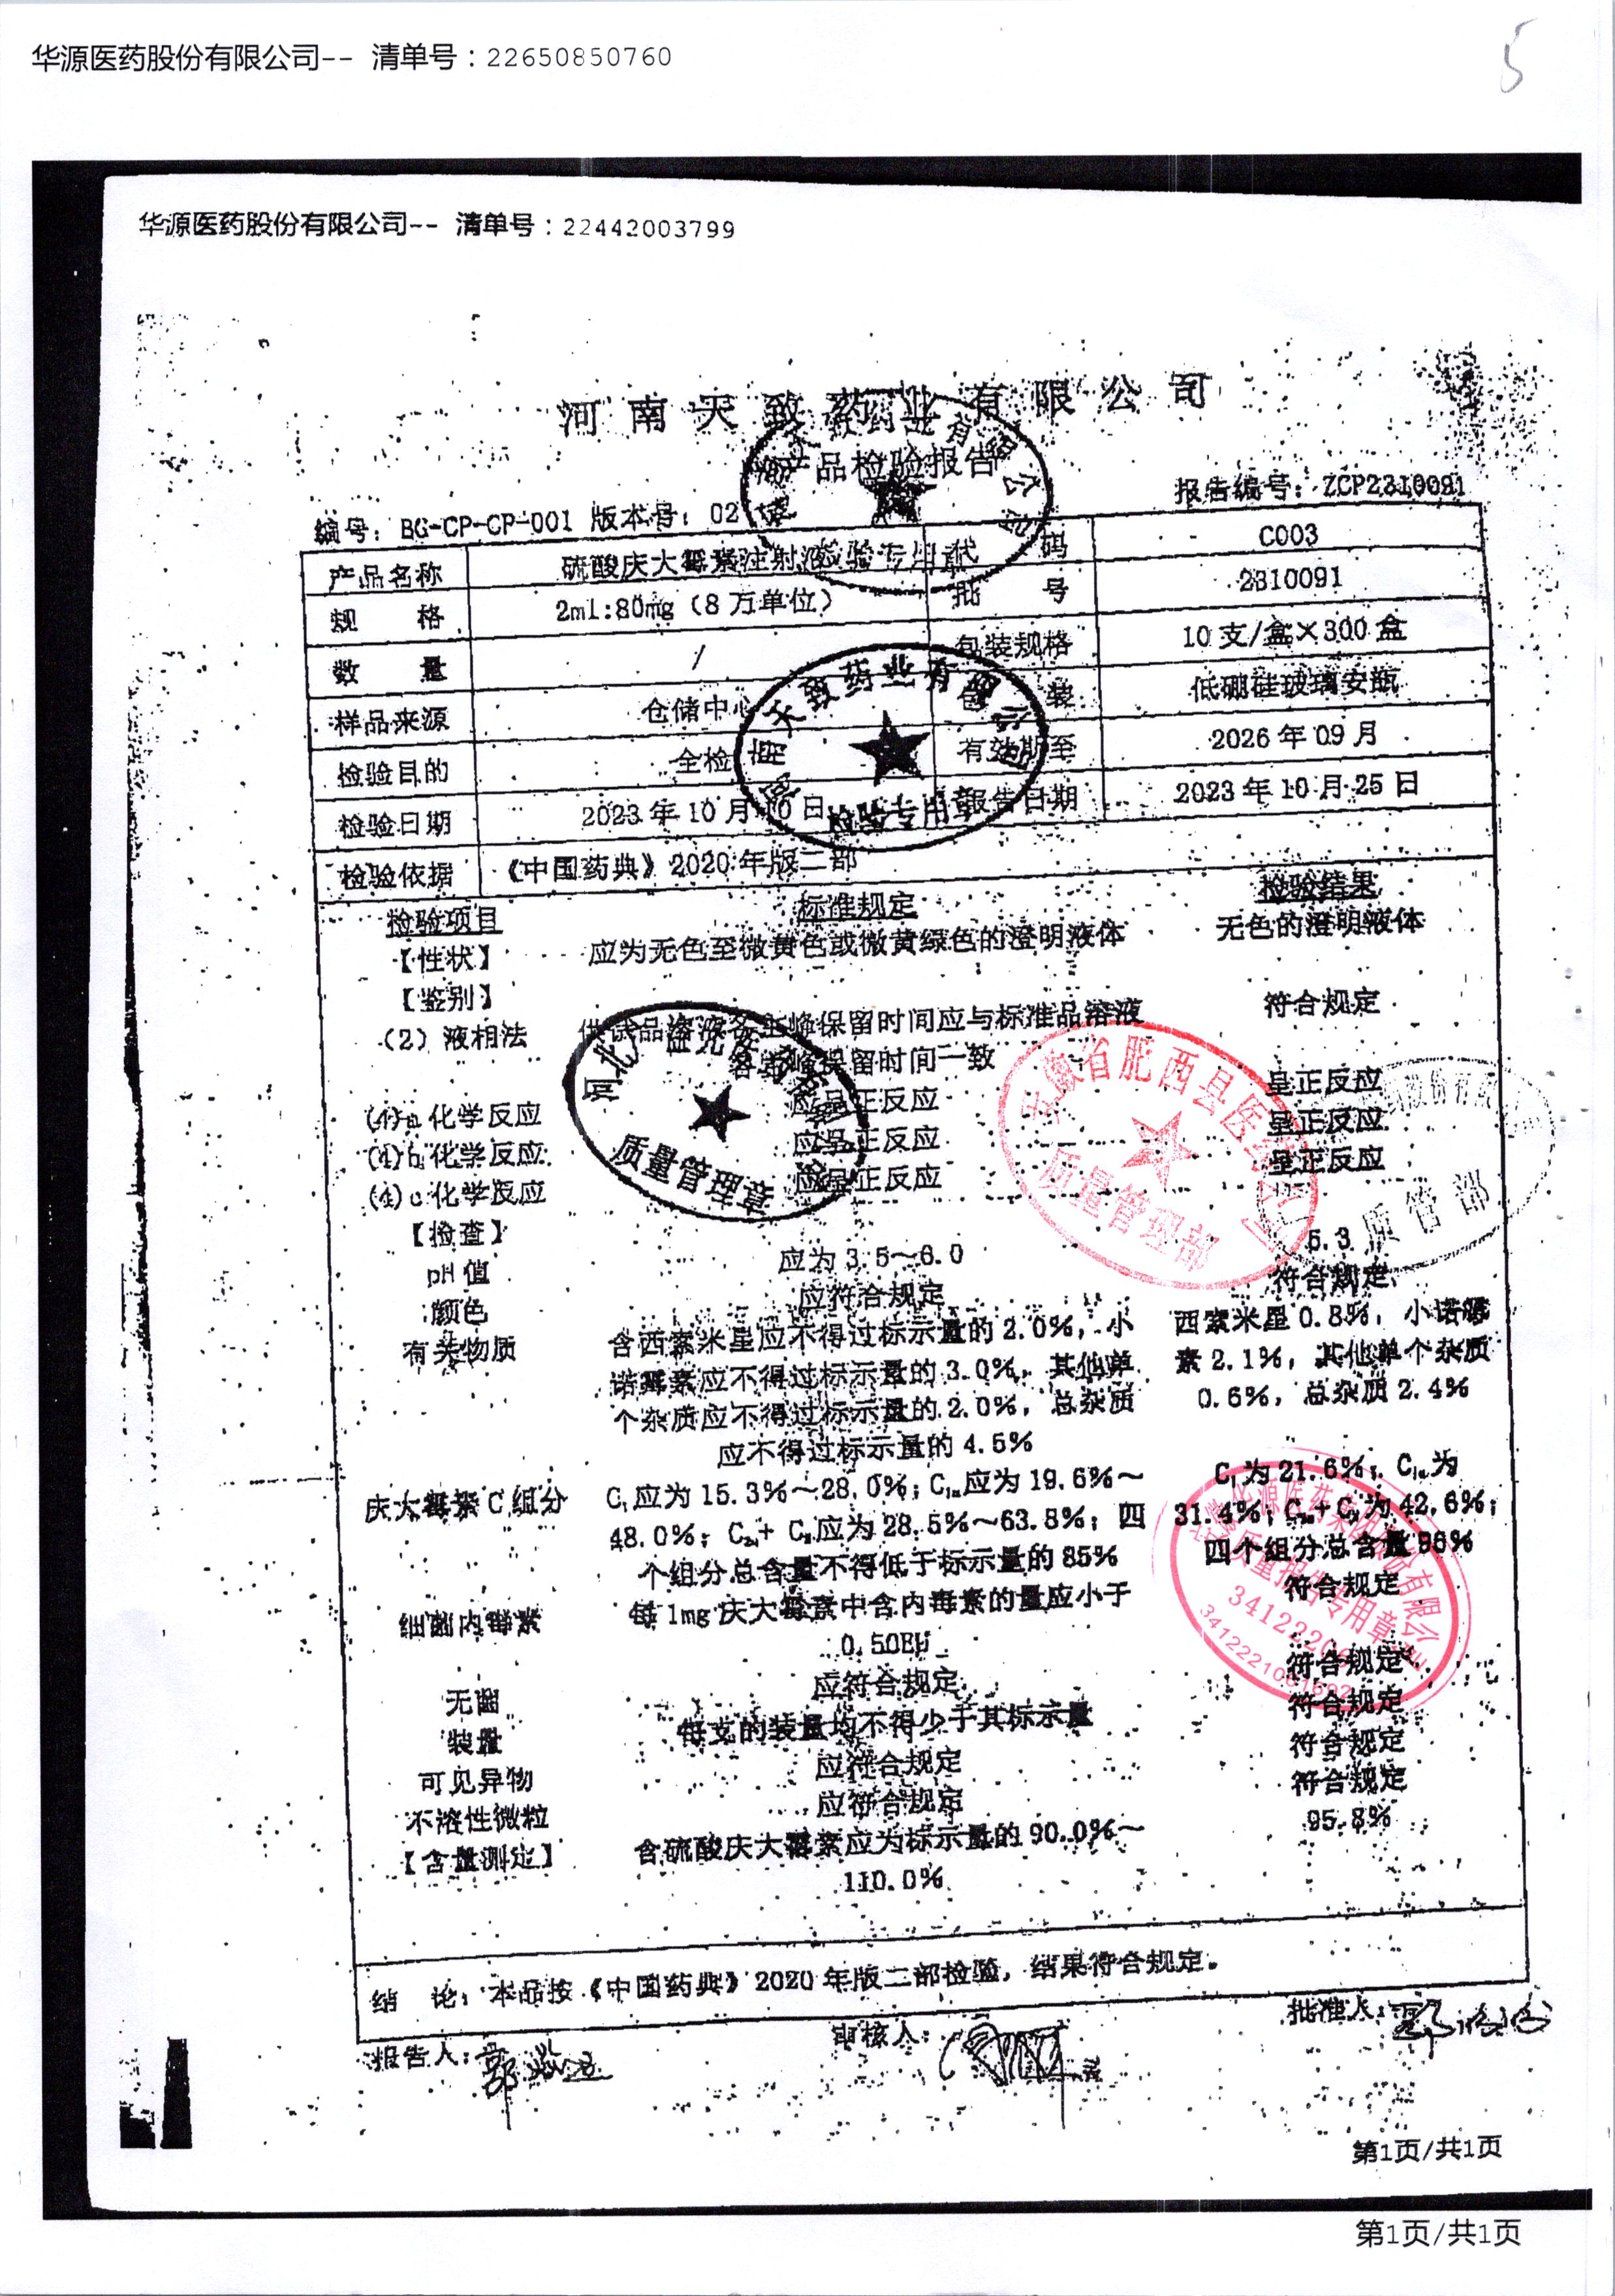 华源医药股份有限公司-- 清单号：22650850760
5
华源医药股份有限公司-- 清单号：22442003799
河南天致药业有限公司
产品检验报告
编号：BG-CP-CP-001 版本号：02
报告编号：ZCP2310091
产品名称 硫酸庆大霉素注射液 代码 C003
规格 2ml:80mg（8万单位） 批号 2310091
数量 / 包装规格 10支/盒×300盒
样品来源 仓储中心 包装 低硼硅玻璃安瓿
检验目的 全检 有效期至 2026年09月
检验日期 2023年10月10日 报告日期 2023年10月25日
检验依据 《中国药典》2020年版二部
检验项目 标准规定 检验结果
【性状】 应为无色至微黄色或微黄绿色的澄明液体 无色的澄明液体
【鉴别】
（2）液相法 供试品溶液各主峰保留时间应与标准品溶液 符合规定
各主峰保留时间一致
(4)a 化学反应 应呈正反应 呈正反应
(4)b 化学反应 应呈正反应 呈正反应
(4)c 化学反应 应呈正反应 呈正反应
【检查】
pH值 应为3.5～6.0 5.3
颜色 应符合规定 符合规定
有关物质 含西索米星应不得过标示量的2.0%，小 西索米星0.8%，小诺霉
诺霉素应不得过标示量的3.0%，其他单 素2.1%，其他单个杂质
个杂质应不得过标示量的2.0%，总杂质 0.6%，总杂质2.4%
应不得过标示量的4.5%
庆大霉素C组分 C₁应为15.3%～28.0%；C₁ₐ应为19.6%～ C₁为21.6%；C₁ₐ为
48.0%；C₂ₐ+C₂应为28.5%～63.8%；四 31.4%；C₂ₐ+C₂为42.6%；
个组分总含量不得低于标示量的85% 四个组分总含量96%
细菌内毒素 每1mg庆大霉素中含内毒素的量应小于 符合规定
0.50EU
无菌 应符合规定 符合规定
装量 每支的装量均不得少于其标示量 符合规定
可见异物 应符合规定 符合规定
不溶性微粒 应符合规定 符合规定
【含量测定】 含硫酸庆大霉素应为标示量的90.0%～ 95.8%
110.0%
结论：本品按《中国药典》2020年版二部检验，结果符合规定。
报告人： 审核人： 批准人：
河南天致药业有限公司
检验专用章
河南天致药业有限公司
检验专用章
质量管理章
安徽省肥西县医药公司
质量管理部
质管部
质量报告专用章
第1页/共1页
第1页/共1页